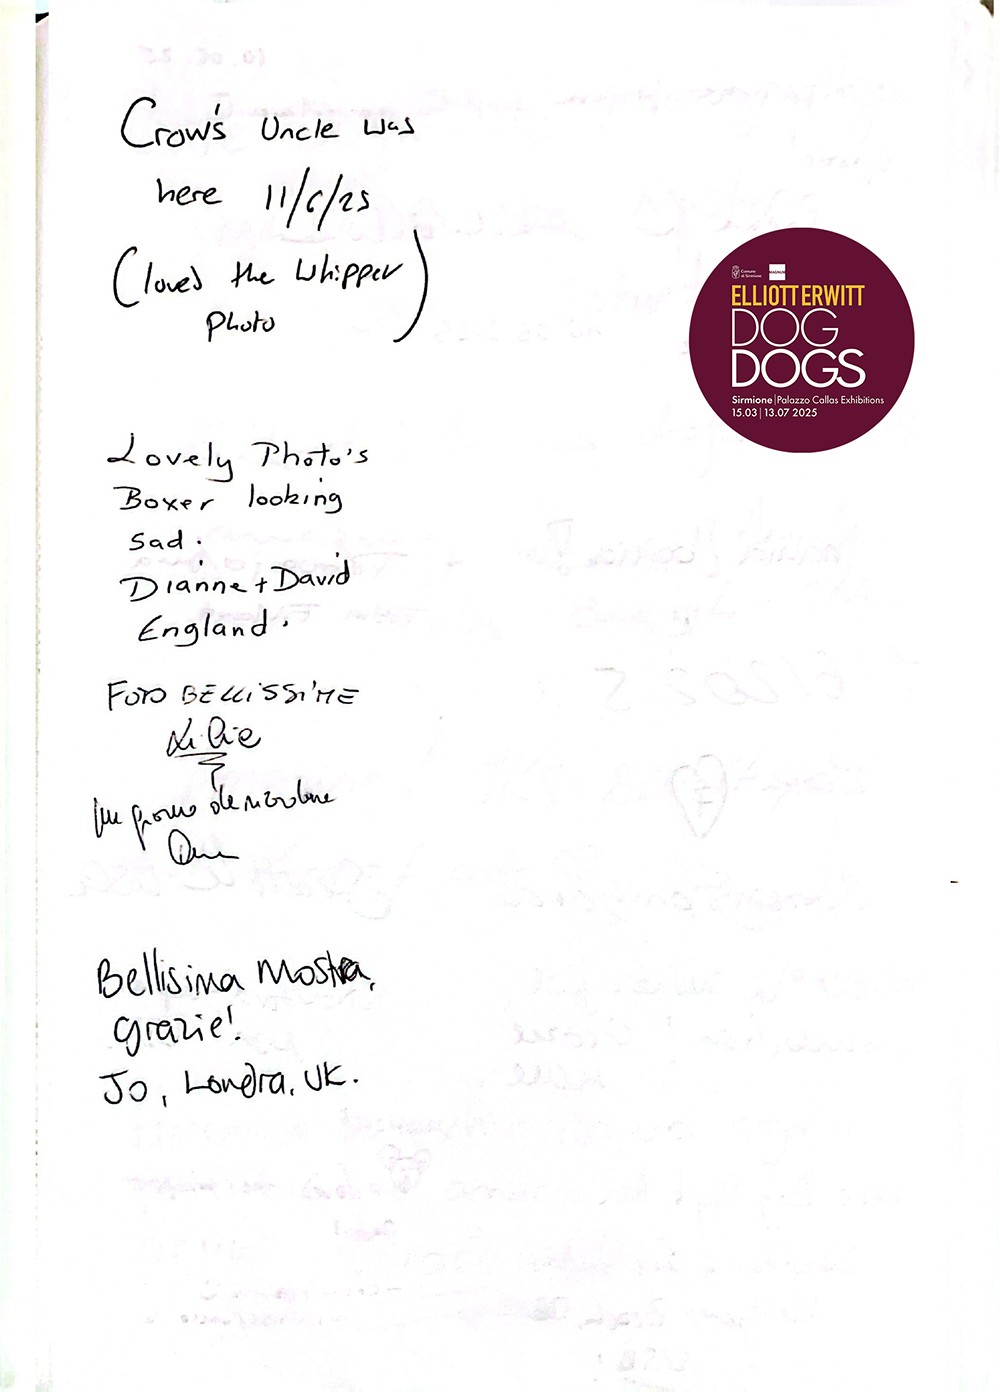 Crow's Uncle was
here 11/6/25
(loved the Whippet
Photo)
Comune
di Sirmione
MAGNUM
ELLIOTT ERWITT
DOG
DOGS
Sirmione | Palazzo Callas Exhibitions
15.03 | 13.07 2025
Lovely Photo's
Boxer looking
sad.
Dianne + David
England.
FOTO BELLISSIME
giorno
Bellisima Mostra,
grazie!
Jo, Londra, UK.